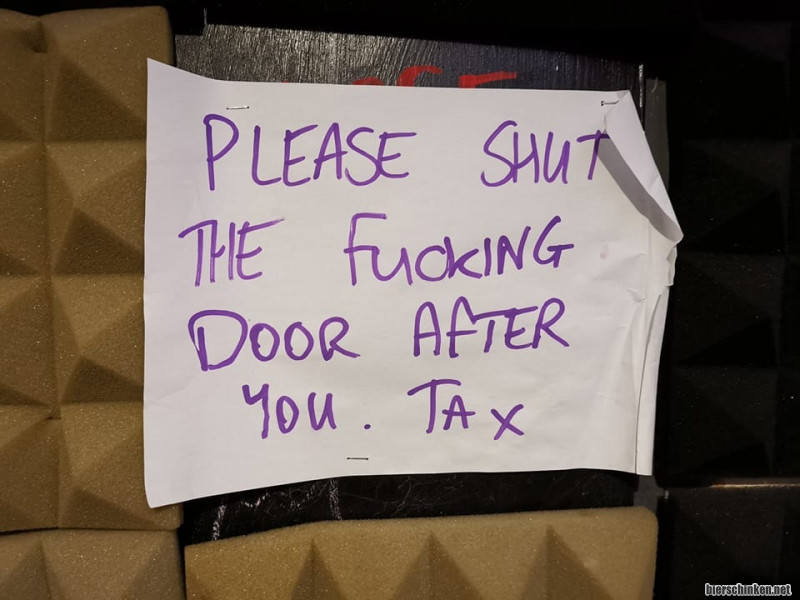 PLEASE SHUT
THE FUCKING
DOOR AFTER
YOU. TAX
bierschinken.net